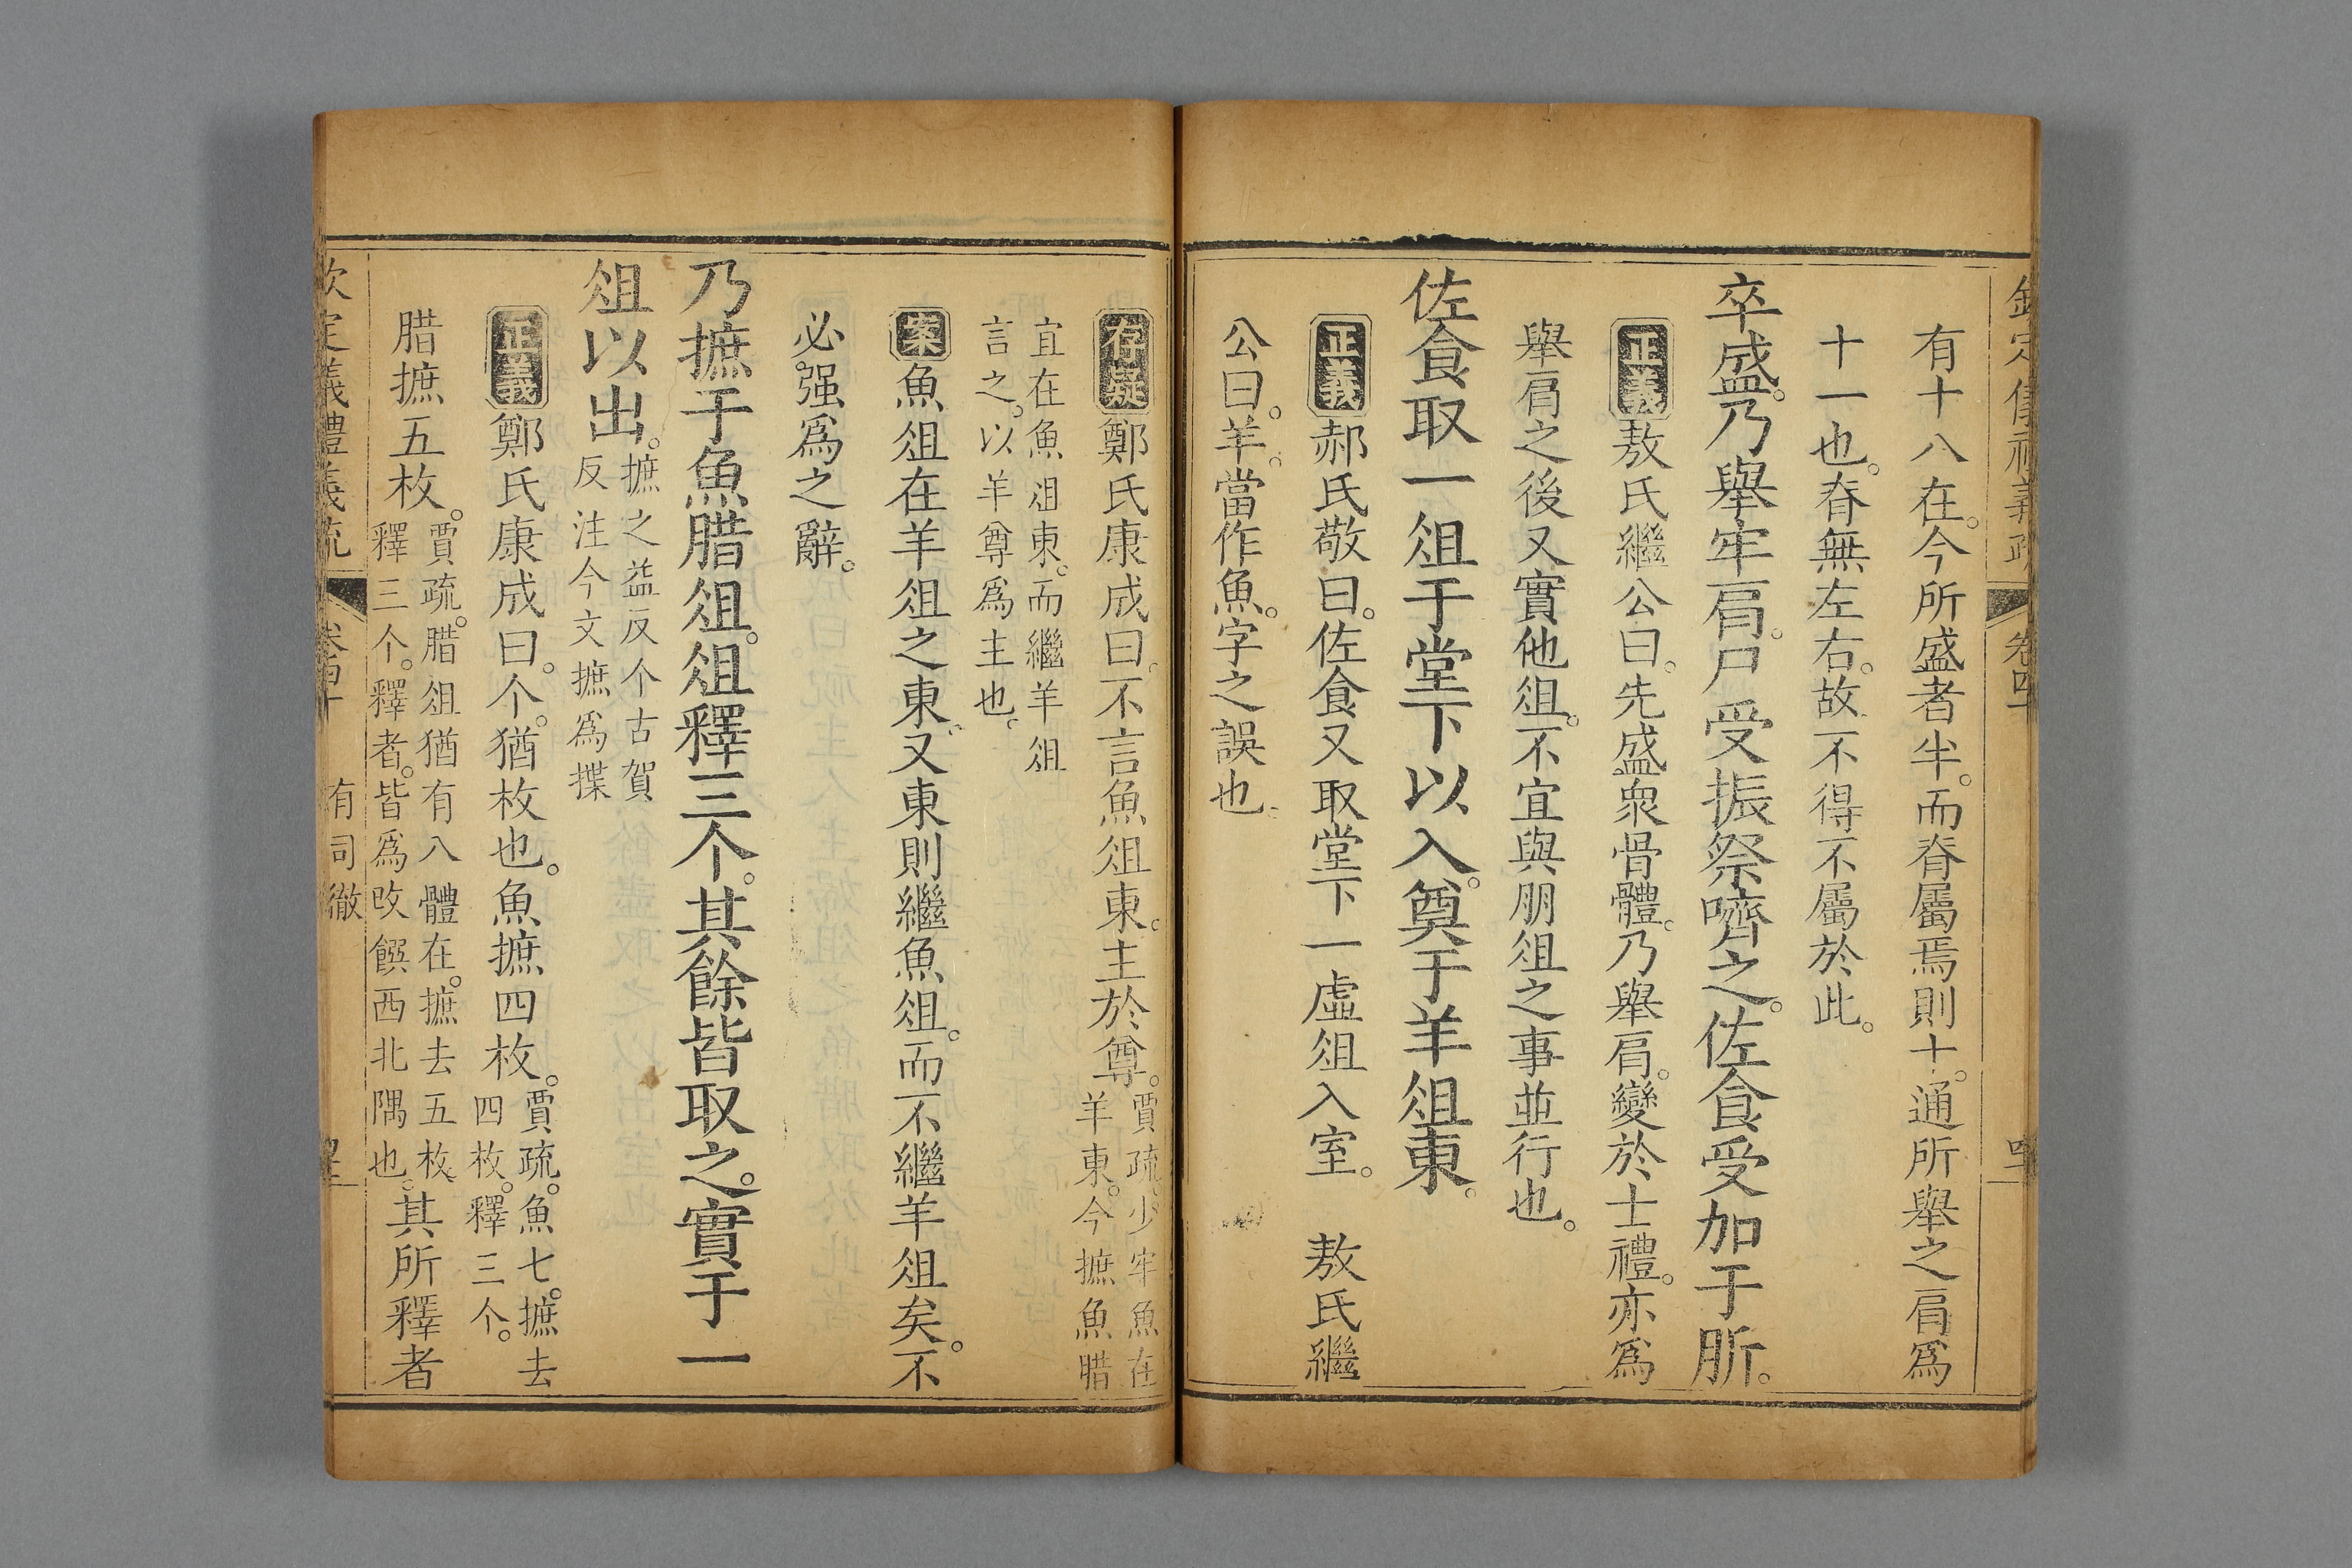 有十八在。今所盛者半。而脊屬焉則十。通所舉之肩爲
十一也。脊無左右。故不得不屬於此。
卒盛。乃舉牢肩。尸受振祭嚌之。佐食受加于肵。
正義敖氏繼公曰。先盛衆骨體。乃舉肩。變於士禮。亦爲
舉肩之後又實他俎。不宜與朋俎之事並行也。
佐食取一俎于堂下以入。奠于羊俎東。
正義郝氏敬曰。佐食又取堂下一虛俎入室。 敖氏繼
公曰。羊。當作魚。字之誤也。
存疑鄭氏康成曰。不言魚俎東。主於尊。
賈疏。少牢魚在
羊東。今摭魚腊
宜在魚俎東。而繼羊俎
言之。以羊尊爲主也。
案魚俎在羊俎之東。又東則繼魚俎。而不繼羊俎矣。不
必強爲之辭。
乃摭于魚腊俎。俎釋三个。其餘皆取之。實于一
俎以出。
摭之益反个古賀
反注今文摭爲揲
正義鄭氏康成曰。个。猶枚也。魚摭四枚。
賈疏。魚七。摭去
四枚。釋三个。
腊摭五枚。
賈疏。腊俎猶有八體在。摭去五枚。
釋三个。釋者。皆爲改饌西北隅也。
其所釋者
欽定儀禮義疏
有司徹